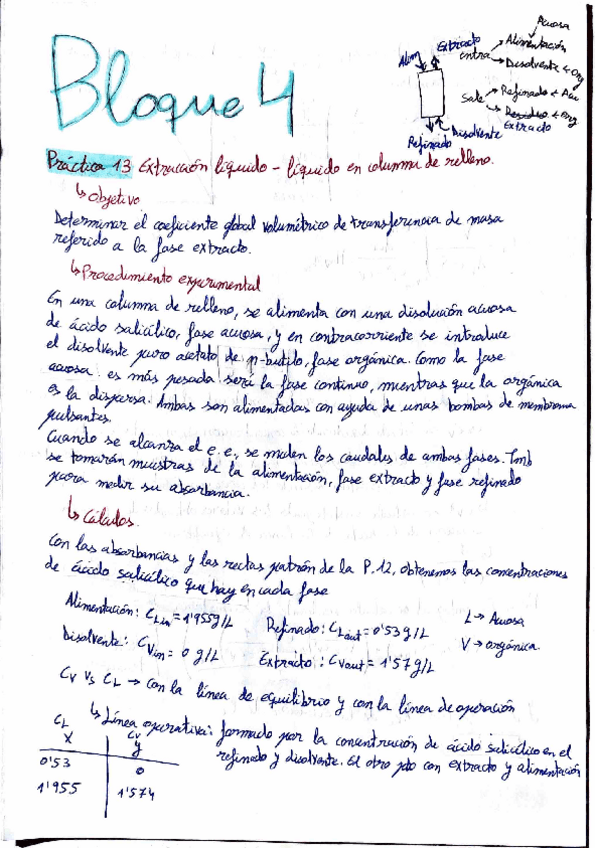 Bloque 4
Alim
Extracto
Refinado
Disolvente
entra → Alimentación
Acuosa
→ Disolvente + Org
Sale → Refinado + Acu
→ Residuo + Org
Extracto
Práctica 13 Extracción líquido - líquido en columna de relleno.
↳ Objetivo
Determinar el coeficiente global volumétrico de transferencia de masa
referido a la fase extracto.
↳ Procedimiento experimental
En una columna de relleno, se alimenta con una disolución acuosa
de ácido salicílico, fase acuosa, y en contracorriente se introduce
el disolvente puro acetato de n-butilo, fase orgánica. Como la fase
acuosa es más pesada será la fase continua, mientras que la orgánica
es la dispersa. Ambas son alimentadas con ayuda de unas bombas de membrana
pulsantes.
Cuando se alcanza el e.e., se miden los caudales de ambas fases. Tmb
se tomarán muestras de la alimentación, fase extracto y fase refinado
para medir su absorbancia.
↳ Cálculos.
Con las absorbancias y las rectas patrón de la P.12, obtenemos las concentraciones
de ácido salicílico que hay en cada fase
Alimentación: C_Lin = 1'955 g/L
Refinado: C_Lout = 0'53 g/L
L → Acuosa
Disolvente: C_Vin = 0 g/L
Extracto: C_Vout = 1'57 g/L
V → orgánica
C_V vs C_L → con la línea de equilibrio y con la línea de operación
↳ Línea operativa: formado por la concentración de ácido salicílico en el
refinado y disolvente. El otro pto con extracto y alimentación
C_L C_V
x y
0'53 0
1'955 1'574